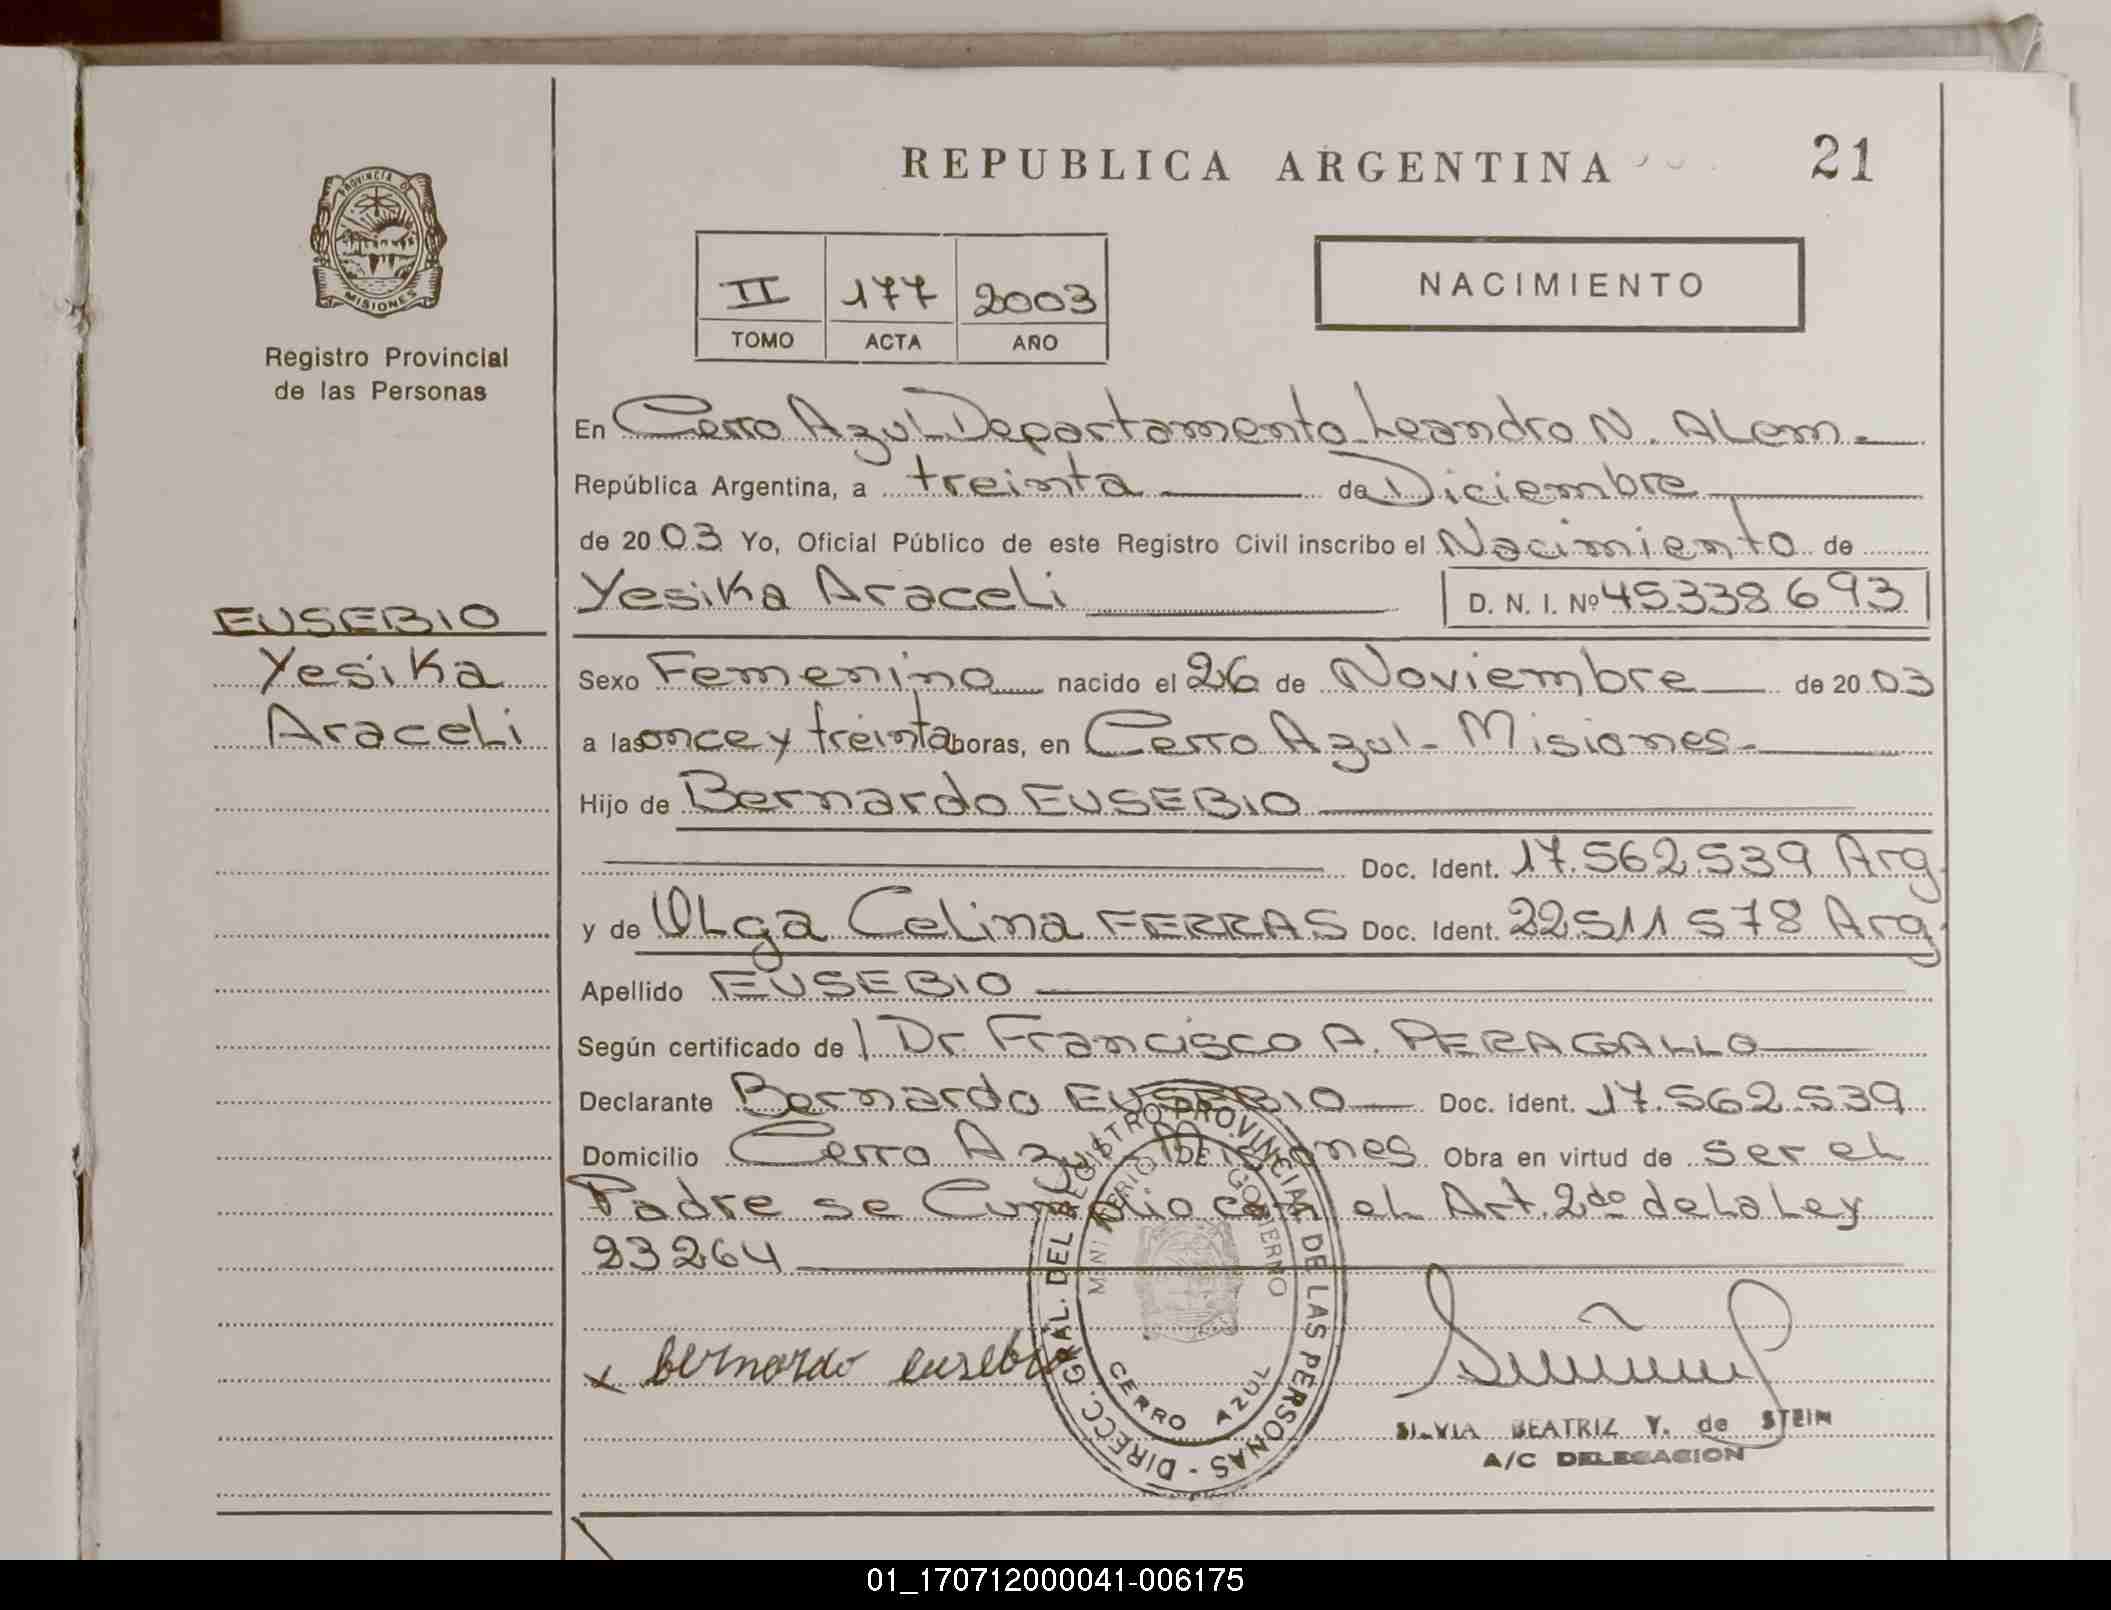 REPUBLICA ARGENTINA
21
PROVINCIA DE
MISIONES
Registro Provincial
de las Personas
II 177 2003
TOMO ACTA AÑO
NACIMIENTO
En Cerro Azul Departamento Leandro N. Alem.
República Argentina, a treinta de Diciembre
de 2003 Yo, Oficial Público de este Registro Civil inscribo el Nacimiento de
Yesika Araceli D. N. I. Nº 45338693
EUSEBIO
Yesika
Araceli
Sexo Femenino nacido el 26 de Noviembre de 2003
a las once y treinta horas, en Cerro Azul - Misiones -
Hijo de Bernardo EUSEBIO
Doc. Ident. 17.562.539 Arg.
y de Olga Celina FERRAS Doc. Ident. 22511578 Arg.
Apellido EUSEBIO
Según certificado de l Dr Francisco A. PERAGALLO
Declarante Bernardo EUSEBIO Doc. ident. 17.562.539
Domicilio Cerro Azul Misiones Obra en virtud de ser el
Padre se Cumplio con el Art. 2do de la Ley
23264
x bernardo eusebio
DIRECC. GRAL. DEL REGISTRO PROVINCIAL DE LAS PERSONAS -
MINISTERIO DE GOBIERNO
CERRO AZUL
SILVIA BEATRIZ Y. de STEIN
A/C DELEGACION
01_170712000041-006175